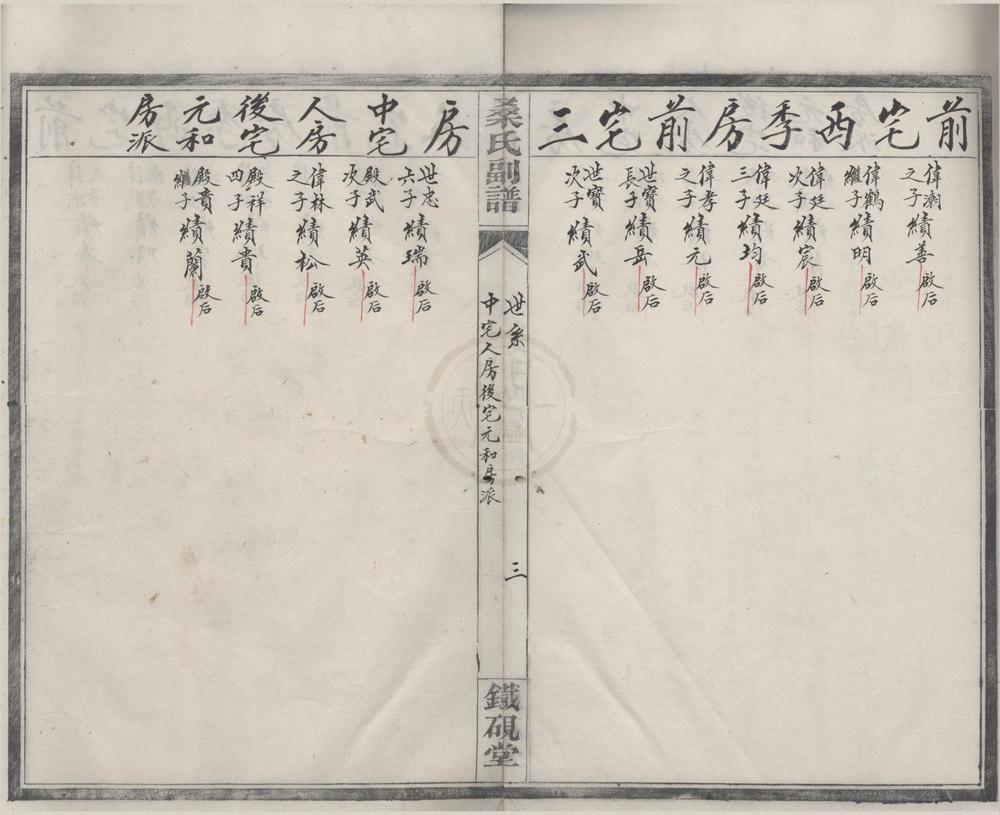 前宅西季房前宅三
偉潮之子 續善 啟后
偉鶴繼子 續明 啟后
偉廷次子 續宸 啟后
偉廷三子 續均 啟后
偉孝之子 續元 啟后
世寶長子 續岳 啟后
世寶次子 續武 啟后
桑氏副譜
世系
中宅人房後宅元和房派
三
鐵硯堂
房中宅人房後宅元和房派
世忠六子 續瑞 啟后
殿武次子 續英 啟后
偉林之子 續松 啟后
殿祥四子 續貴 啟后
殿賁繼子 續蘭 啟后